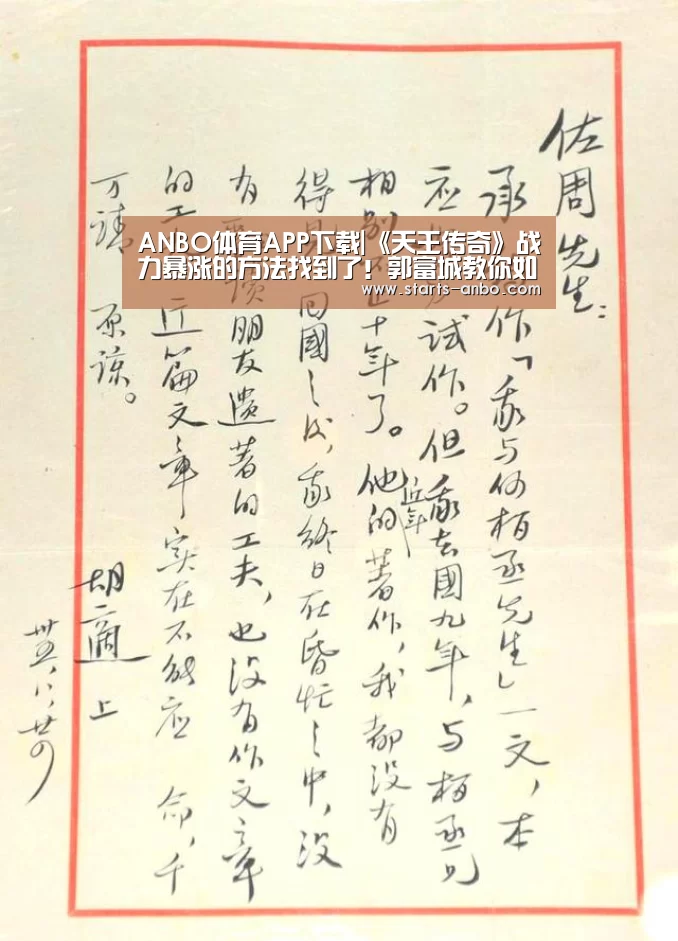 佐周先生：
承 作「我与何柏丞先生」一文，本
应 试作。但我去國九年，与柏丞兄
相别不止十年了。他的近年著作，我都没有
得見 回國之后，我終日在昏忙之中，没
有 讀朋友遺著的工夫，也没有作文章
的工 这篇文章实在不能应 命，千
万請 原諒。
胡適上
卅五、八、廿四
ANBO体育APP下载|《天王传奇》战
力暴涨的方法找到了！郭富城教你如
www.starts-anbo.com